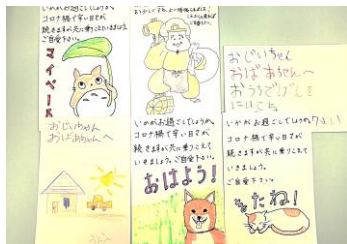 いかがお過ごしでしょうか。
コロナ禍で辛い日々が
続きますが共に乗りこえていきましょう。
ご自愛下さい。
マイペース
おじいちゃん
おばあちゃんへ
おはよう！
おじいちゃん
おばあちゃんへ
おうちでげんき
にいこう
いかがお過ごしでしょうか？
コロナ禍で辛い日々が
続きますが共に乗りこえて
いきましょう。
ご自愛下さい。
いかがお過ごしでしょうか。
コロナ禍で辛い日々が
続きますが共に乗りこえて
いきましょう。ご自愛下さい。
またね！